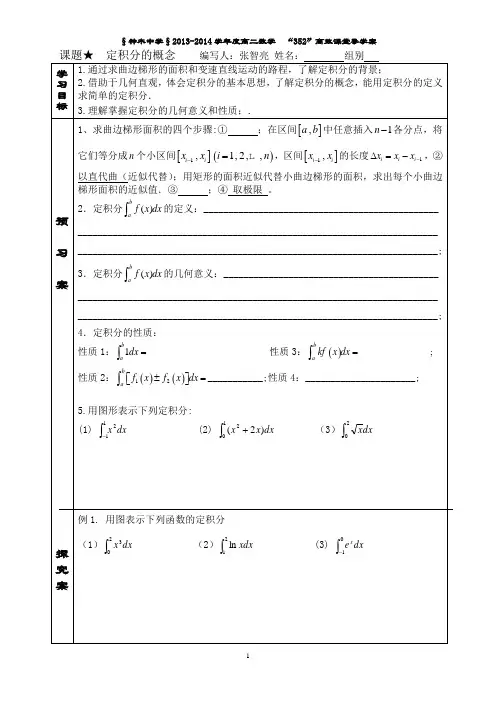 §神木中学§2013-2014学年度高二数学 “352”高效课堂导学案
课题★ 定积分的概念 编写人：张智亮 姓名： 组别
学习目标
1.通过求曲边梯形的面积和变速直线运动的路程，了解定积分的背景；
2.借助于几何直观，体会定积分的基本思想，了解定积分的概念，能用定积分的定义
求简单的定积分．
3.理解掌握定积分的几何意义和性质；.
预习案
1、求曲边梯形面积的四个步骤:① ：在区间[a,b]中任意插入n−1各分点，将
它们等分成n个小区间[x_{i−1},x_i](i=1,2,∟,n)，区间[x_{i−1},x_i]的长度Δx_i=x_i−x_{i−1}，②
以直代曲（近似代替）；用矩形的面积近似代替小曲边梯形的面积，求出每个小曲边
梯形面积的近似值．③ ；④ 取极限 。
2．定积分∫_a^b f(x)dx的定义：_______________________________________________
________________________________________________________________________
________________________________________________________________________;
3．定积分∫_a^b f(x)dx的几何意义：___________________________________________
________________________________________________________________________
________________________________________________________________________;
4．定积分的性质:
性质1：∫_a^b 1dx= 性质3：∫_a^b kf(x)dx= ;
性质2：∫_a^b[f_1(x)±f_2(x)]dx=___________;性质4：______________________;
5.用图形表示下列定积分:
(1) ∫_{−1}^1 x^2dx (2) ∫_0^1(x^2+2x)dx （3）∫_0^2 √x dx
探究案
例1. 用图表示下列函数的定积分
（1）∫_0^2 x^3dx （2）∫_1^2 ln xdx (3) ∫_{−1}^0 e^x dx
1